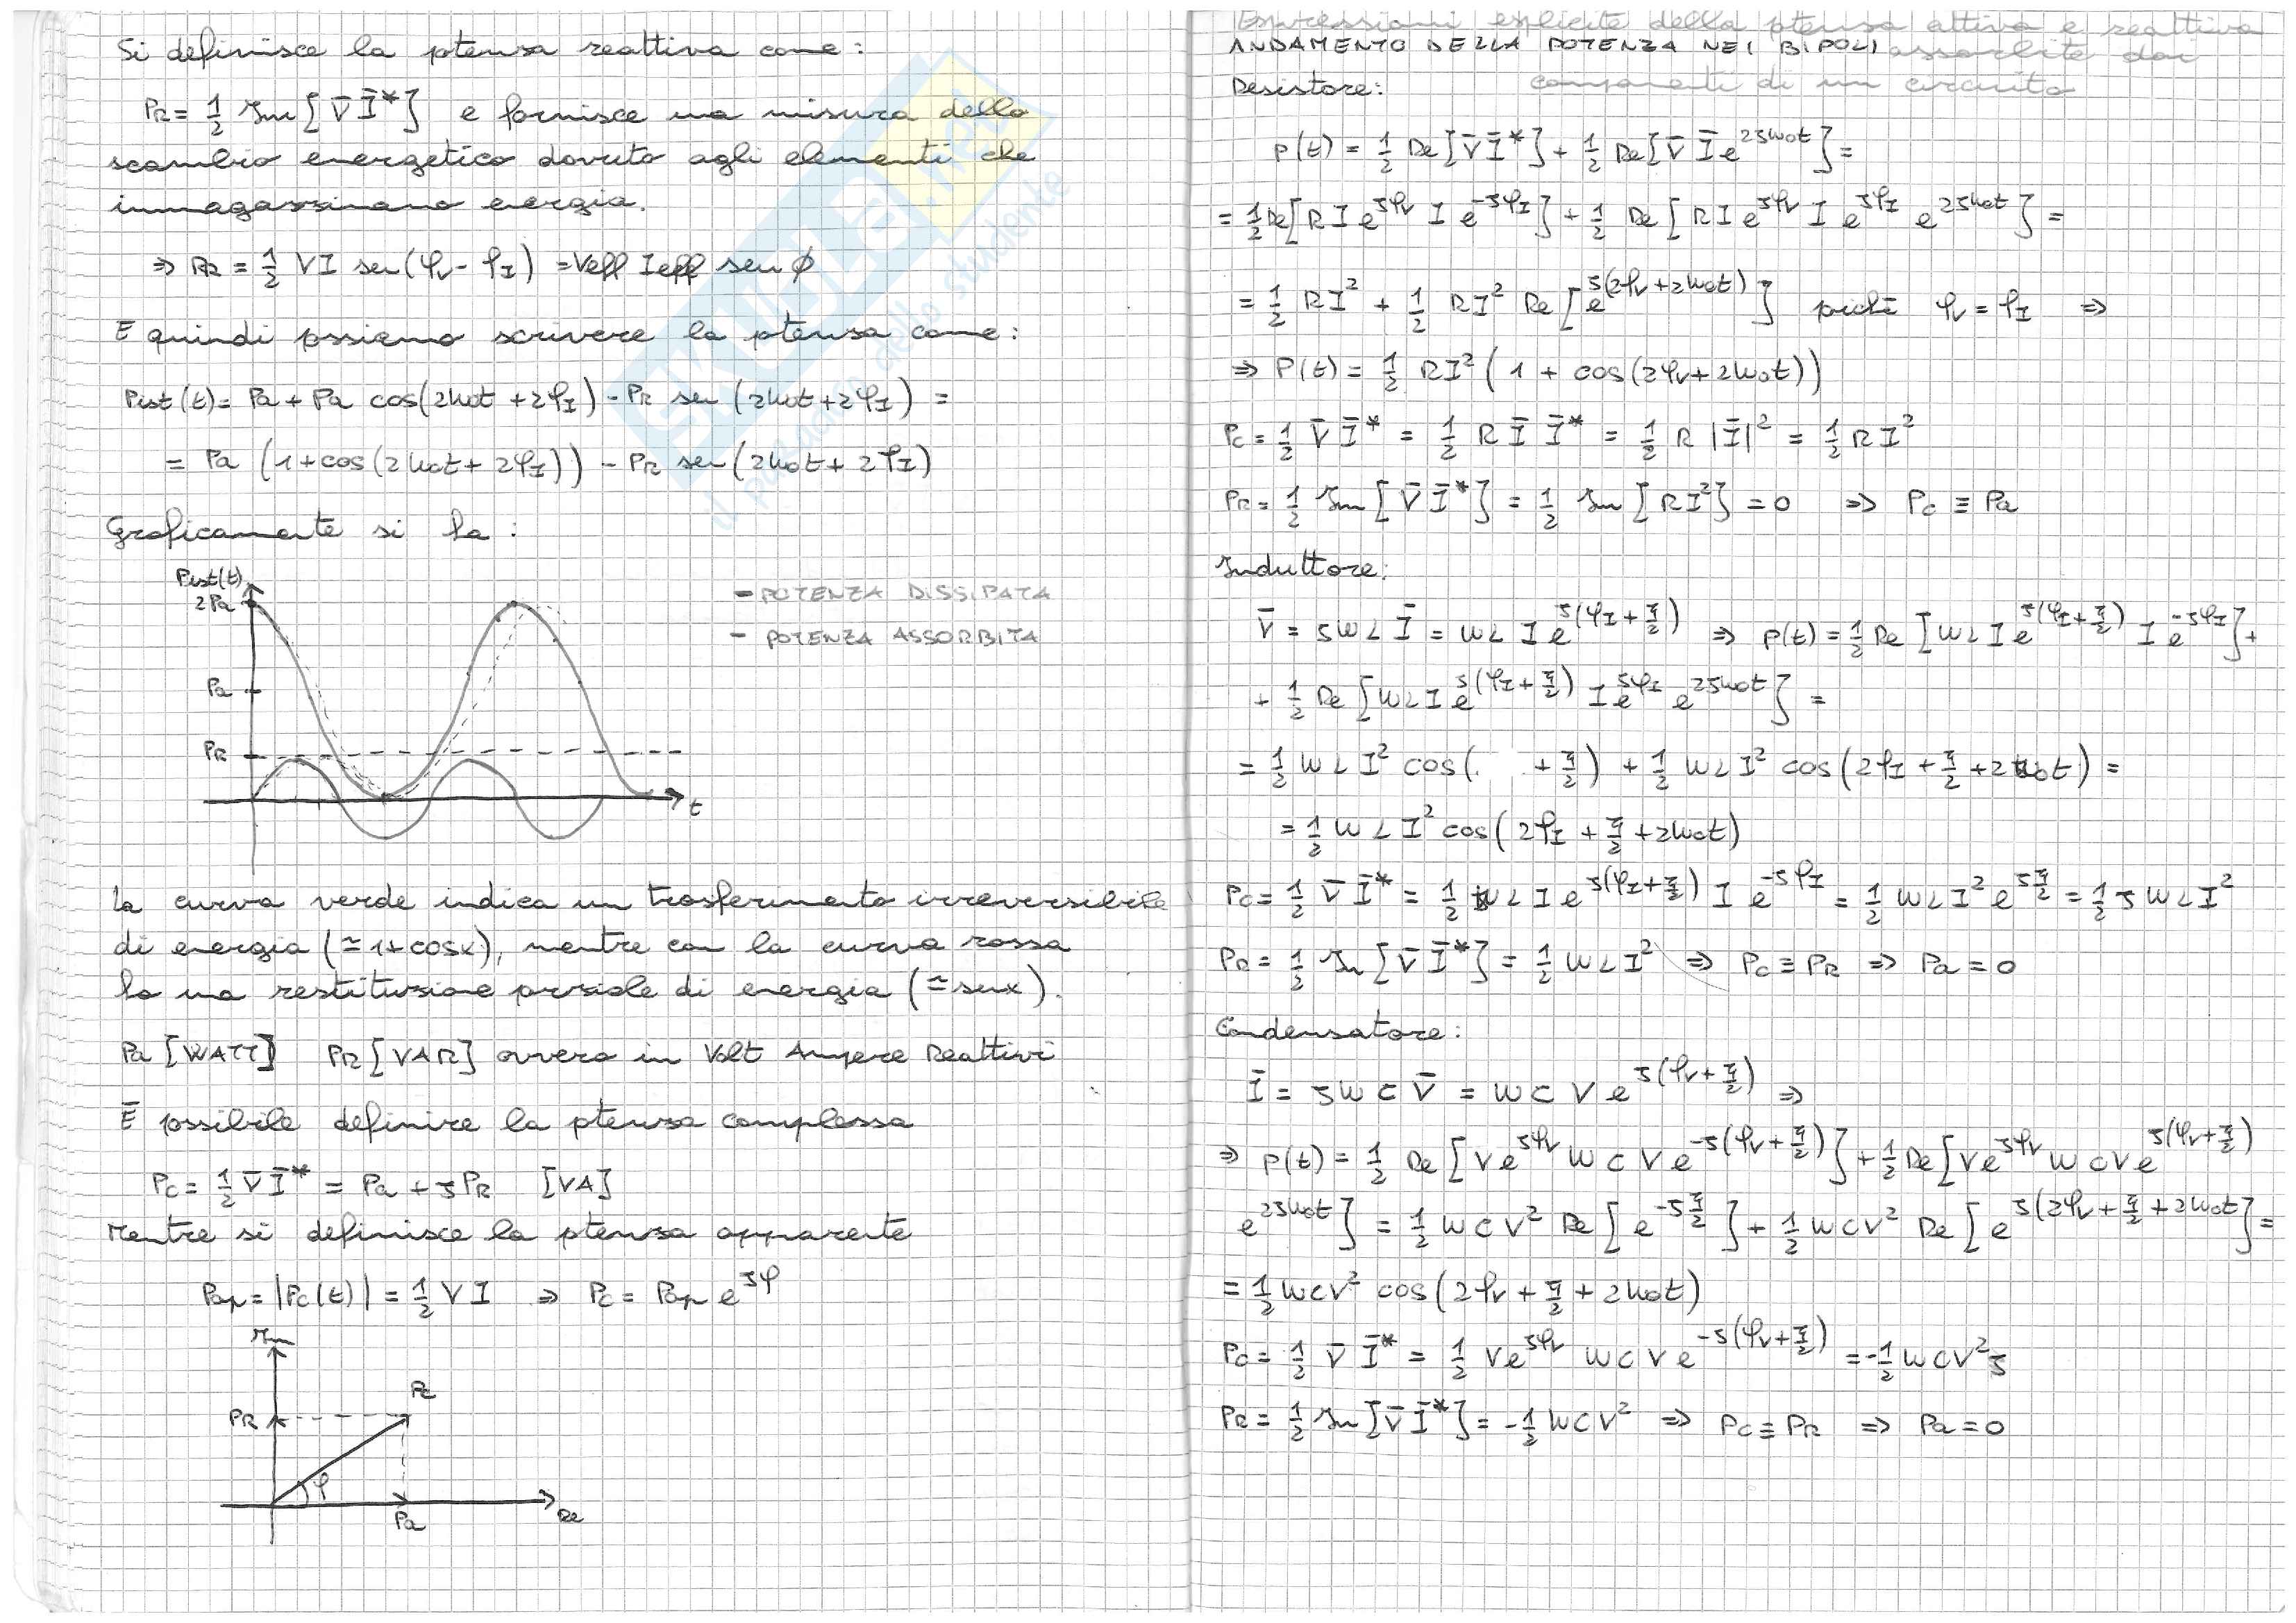 Si definisce la potenza reattiva come:
PR = 1/2 Im [V̄ Ī*] e fornisce una misura dello
scambio energetico dovuto agli elementi che
immagazzinano energia.
⇒ PR = 1/2 VI sen(φV - φI) = Veff Ieff sen ϕ
E quindi possiamo scrivere la potenza come:
Pist(t) = Pa + Pa cos(2ω0t + 2φI) - PR sen(2ω0t + 2φI) =
= Pa (1+cos(2ω0t + 2φI)) - PR sen(2ω0t + 2φI)
Graficamente si ha:
Pist(t)
2Pa
- POTENZA DISSIPATA
- POTENZA ASSORBITA
Pa
PR
t
La curva verde indica un trasferimento irreversibile
di energia (≃ 1+cosx), mentre con la curva rossa
ho una restituzione parziale di energia (≃ senx).
Pa [WATT] PR [VAR] ovvero in Volt Ampere Reattivi
È possibile definire la potenza complessa
Pc = 1/2 V̄ Ī* = Pa + jPR [VA]
Mentre si definisce la potenza apparente
Pap = |Pc(t)| = 1/2 V I ⇒ Pc = Pap e^jφ
Im
Pc
PR
φ
Pa
Re
SKUOLA.net
il paradiso dello studente
Espressioni esplicite della potenza attiva e reattiva
ANDAMENTO DELLA POTENZA NEI BIPOLI assorbite dai
Resistore: componenti di un circuito
p(t) = 1/2 Re[V̄ Ī*] + 1/2 Re[V̄ Ī e^2jω0t] =
= 1/2 Re[R I e^jφV I e^-jφI] + 1/2 Re [R I e^jφV I e^jφI e^2jω0t] =
= 1/2 RI² + 1/2 RI² Re [e^j(2φV + 2ω0t)] poiché φV = φI ⇒
⇒ P(t) = 1/2 RI² (1 + cos(2φV + 2ω0t))
Pc = 1/2 V̄ Ī* = 1/2 R Ī Ī* = 1/2 R |Ī|² = 1/2 RI²
PR = 1/2 Im [V̄ Ī*] = 1/2 Im [RI²] = 0 ⇒ Pc ≡ Pa
Induttore:
V̄ = jωL Ī = ωL I e^j(φI + π/2) ⇒ p(t) = 1/2 Re [ωL I e^j(φI + π/2) I e^-jφI] +
+ 1/2 Re [ωL I e^j(φI + π/2) I e^jφI e^2jω0t] =
= 1/2 ωL I² cos( + π/2) + 1/2 ωL I² cos(2φI + π/2 + 2ω0t) =
= 1/2 ωL I² cos(2φI + π/2 + 2ω0t)
Pc = 1/2 V̄ Ī* = 1/2 ωL I e^j(φI + π/2) I e^-jφI = 1/2 ωL I² e^jπ/2 = 1/2 jωL I²
PR = 1/2 Im [V̄ Ī*] = 1/2 ωL I² ⇒ Pc ≡ PR ⇒ Pa = 0
Condensatore:
Ī = jωC V̄ = ωC V e^j(φV + π/2) ⇒
⇒ p(t) = 1/2 Re [V e^jφV ωC V e^-j(φV + π/2)] + 1/2 Re [V e^jφV ωC V e^j(φV + π/2)
e^2jω0t] = 1/2 ωC V² Re [e^-jπ/2] + 1/2 ωC V² Re [e^j(2φV + π/2 + 2ω0t)] =
= 1/2 ωC V² cos(2φV + π/2 + 2ω0t)
Pc = 1/2 V̄ Ī* = 1/2 V e^jφV ωC V e^-j(φV + π/2) = -1/2 ωC V² j
PR = 1/2 Im [V̄ Ī*] = -1/2 ωC V² ⇒ Pc ≡ PR ⇒ Pa = 0